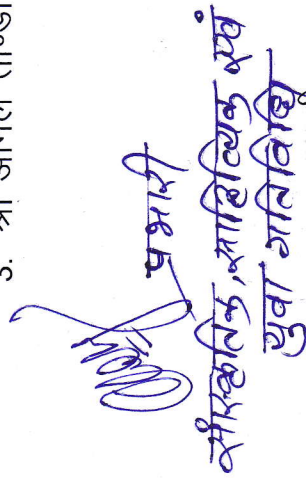 3. श्री अनिल ताण्डी
प्रभारी
सांस्कृतिक, साहित्यिक एवं
युवा गतिविधि